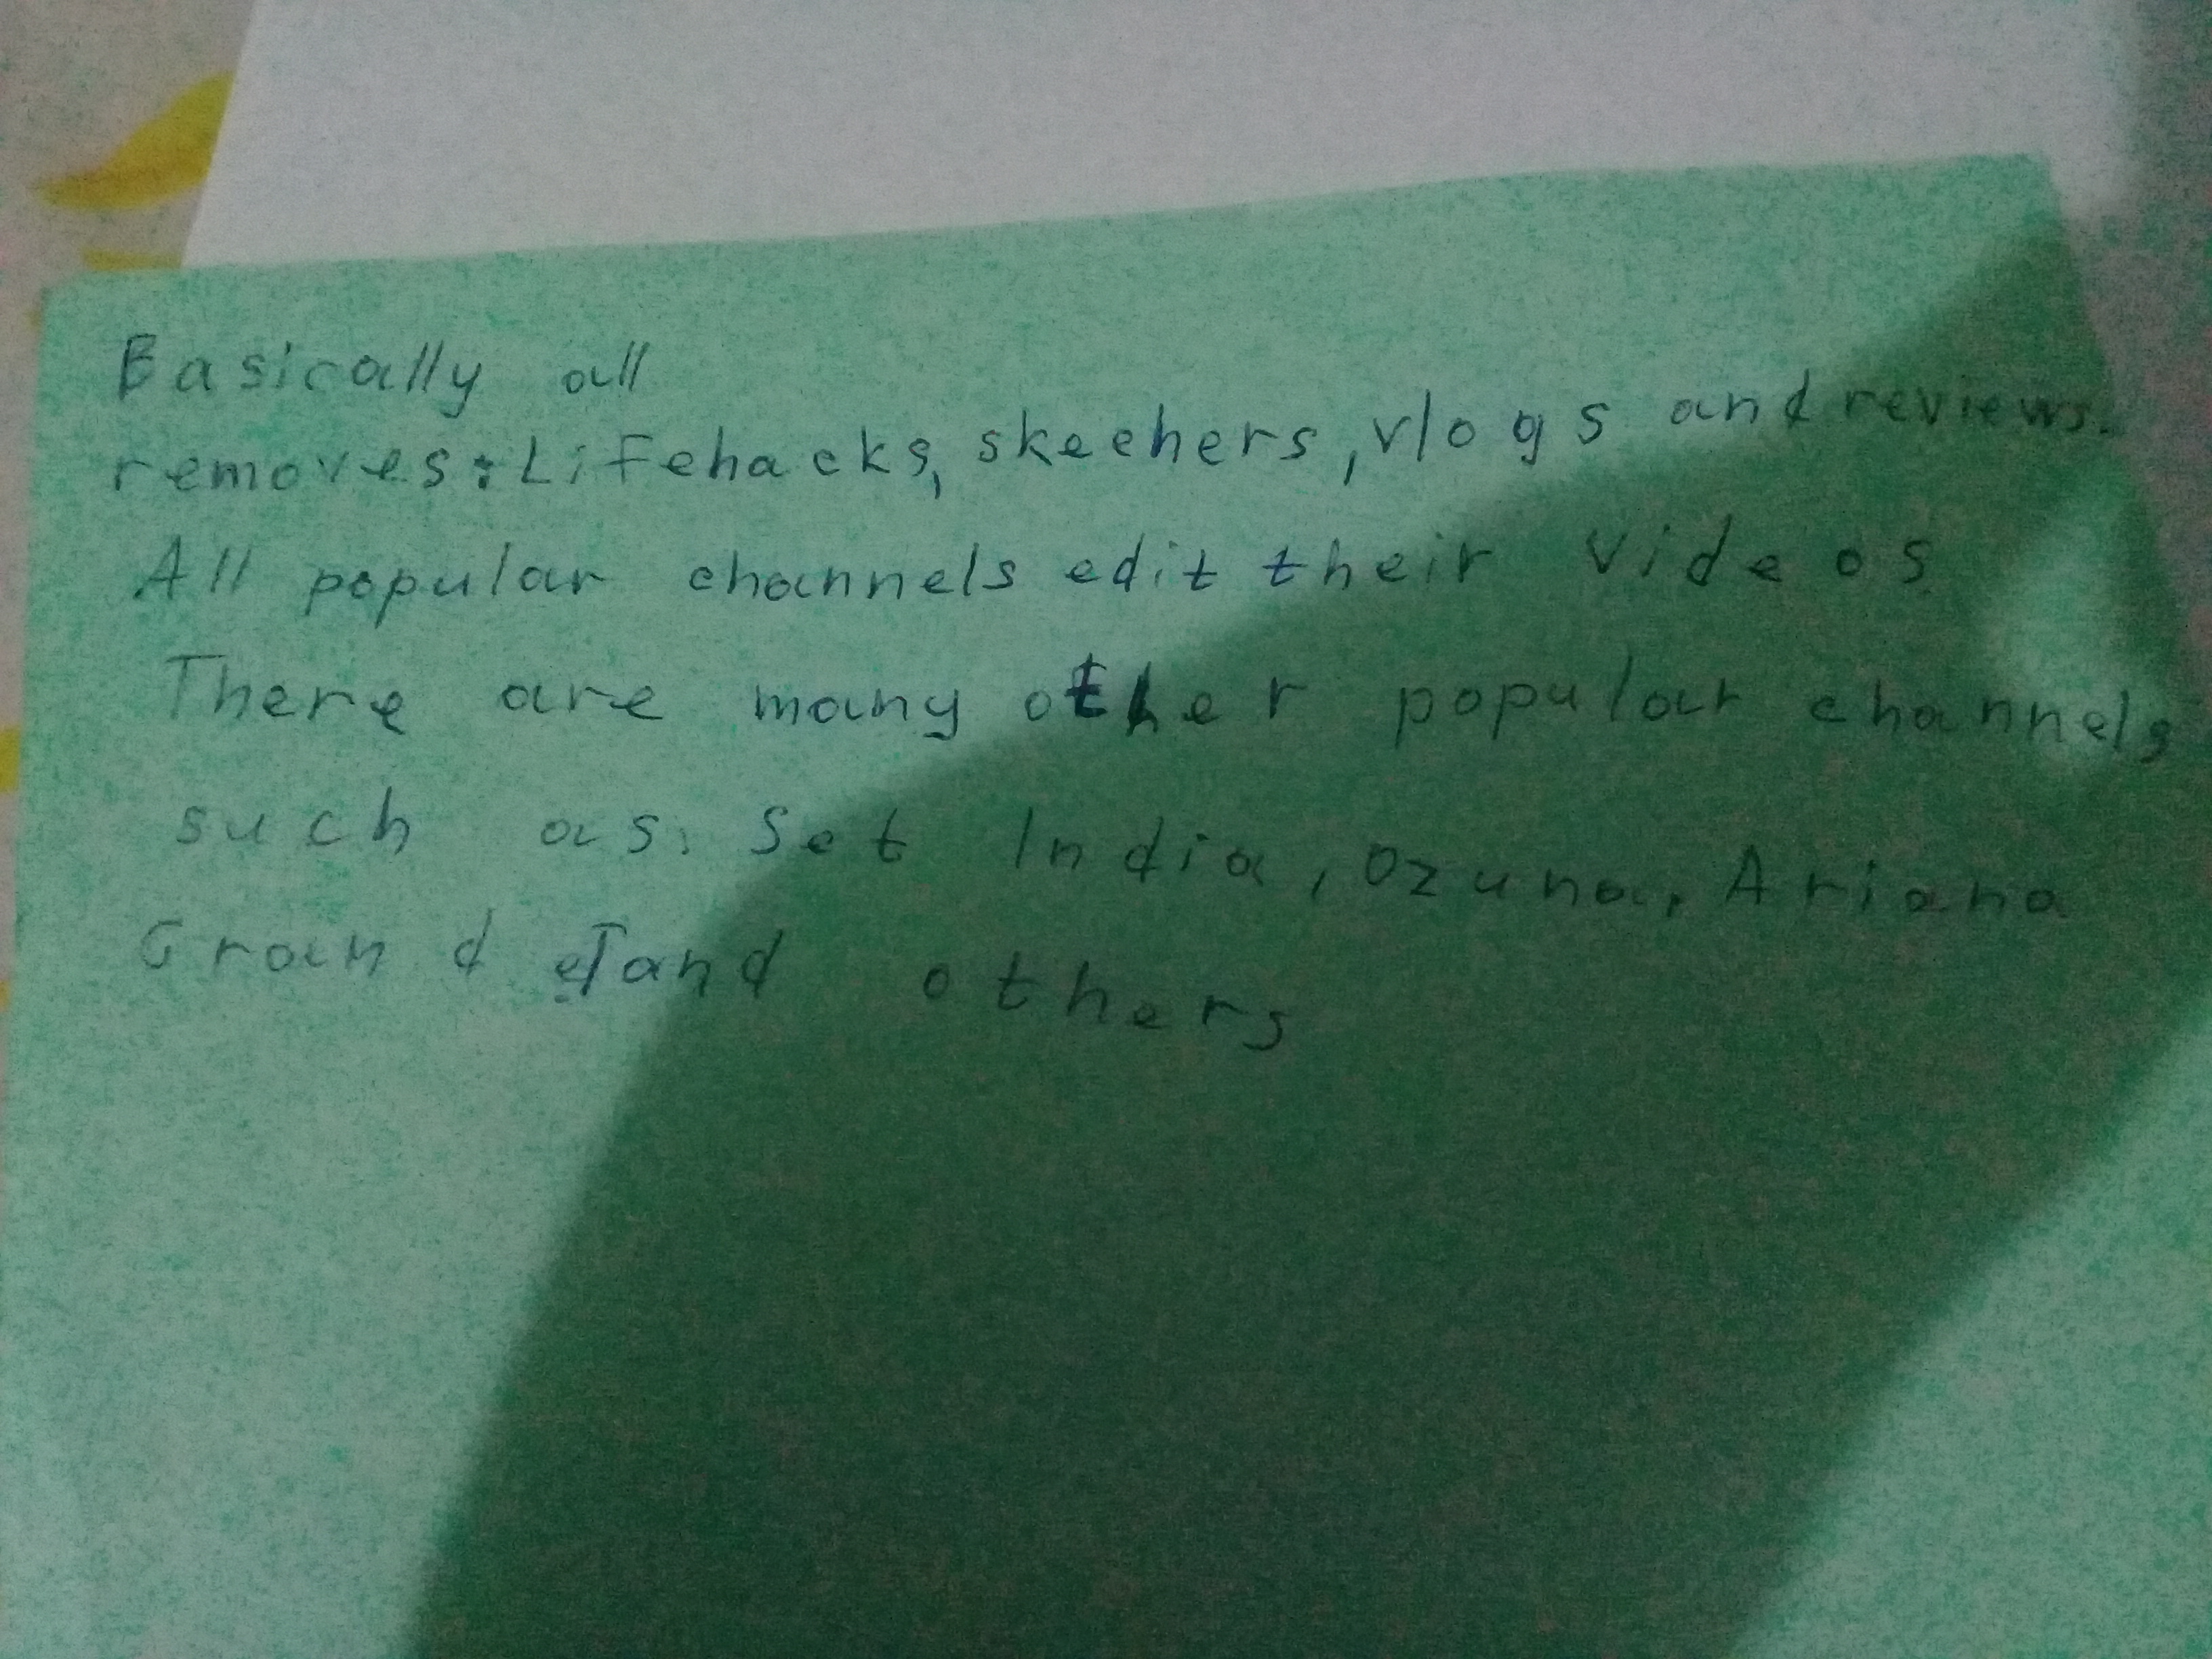 Basically all
removes: Lifehacks, skechers, vlogs and reviews.
All popular channels edit their videos
There are many other popular channels
such as: Set India, Ozuna, Ariana
Grande and others